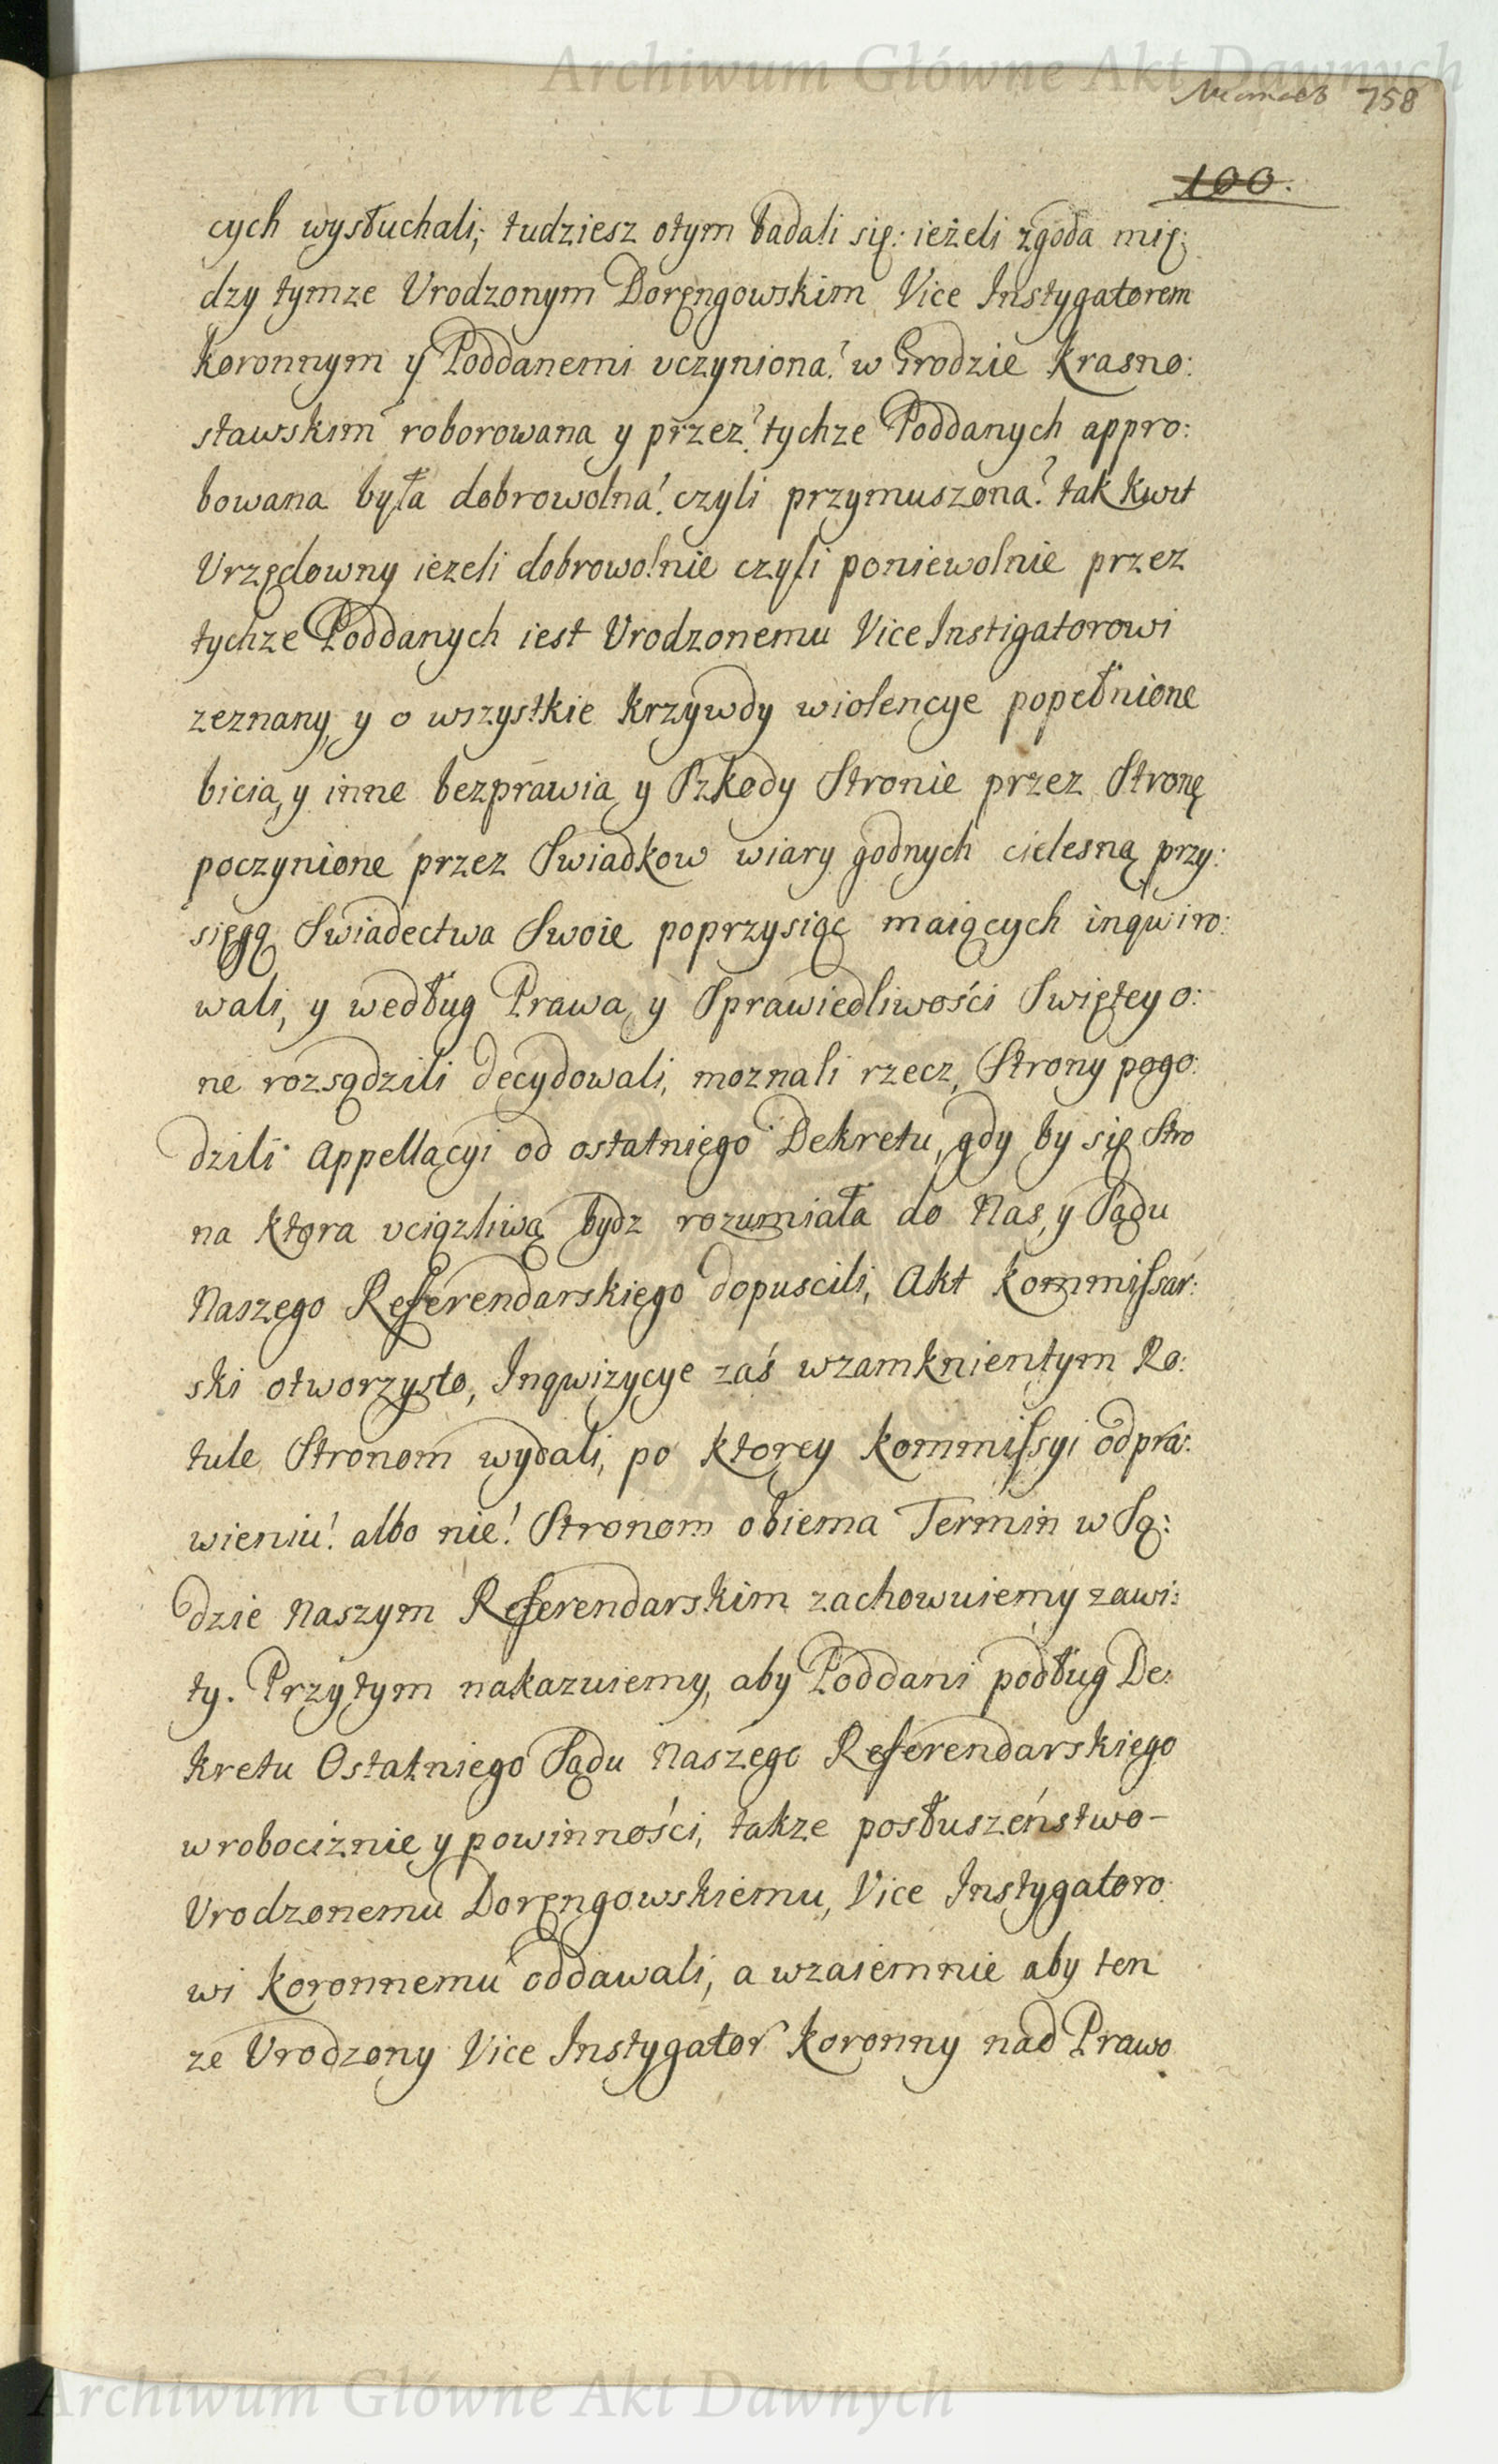 Archiwum Główne Akt Dawnych
758
100.
cych wysłuchali; tudziesz otym badali się: ieżeli zgoda mię:
dzy tymze Urodzonym Doręngowskim Vice Instygatorem
Koronnym y Poddanemi uczyniona? w Grodzie Krasno:
stawskim roborowana y przez? tychze Poddanych appro:
bowana była dobrowolna! czyli przymuszona? tak Kwit
Urzędowny iezeli dobrowolnie czyli poniewolnie przez
tychze Poddanych iest Urodzonemu Vice Instigatorowi
zeznany, y o wszystkie krzywdy wiolencye popełnione
bicia, y inne bezprawia, y Szkody Stronie przez Stronę
poczynione przez Swiadkow wiary godnych cielesną przy:
sięgą Swiadectwa Swoie poprzysiąc maiących inqwiro:
wali, y według Prawa, y Sprawiedliwości Swiętey o:
ne rozsądzili decydowali, moznali rzecz, Strony pogo:
dzili Appellacyi od ostatniego Dekretu, gdy by się Stro
na ktora uciązliwą bydz rozumiała do Nas, y Sądu
Naszego Referendarskiego dopuscili, Akt Kommissar:
ski otworzysto, Inqwizycye zaś wzamknientym Ro:
tule Stronom wydali, po ktorey Kommissyi odpra:
wieniu! albo nie! Stronom obiema Termin w Są:
dzie Naszym Referendarskim zachowuiemy zawi:
ty. Przytym nakazuiemy, aby Poddani podług De:
kretu Ostatniego Sądu Naszego Referendarskiego
w robociznie y powinności, takze posłuszeństwo-
Urodzonemu Doręngowskiemu, Vice Instygatoro:
wi Koronnemu oddawali, a wzaiemnie aby ten
ze Urodzony Vice Instygator Koronny nad Prawo
Archiwum Główne Akt Dawnych